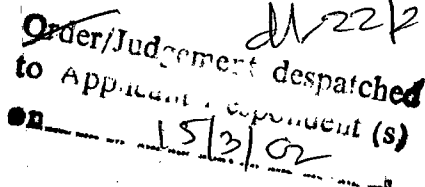 dl 22/2
Order/Judgement despatched
to Applicant Respondent (s)
on 15/3/02